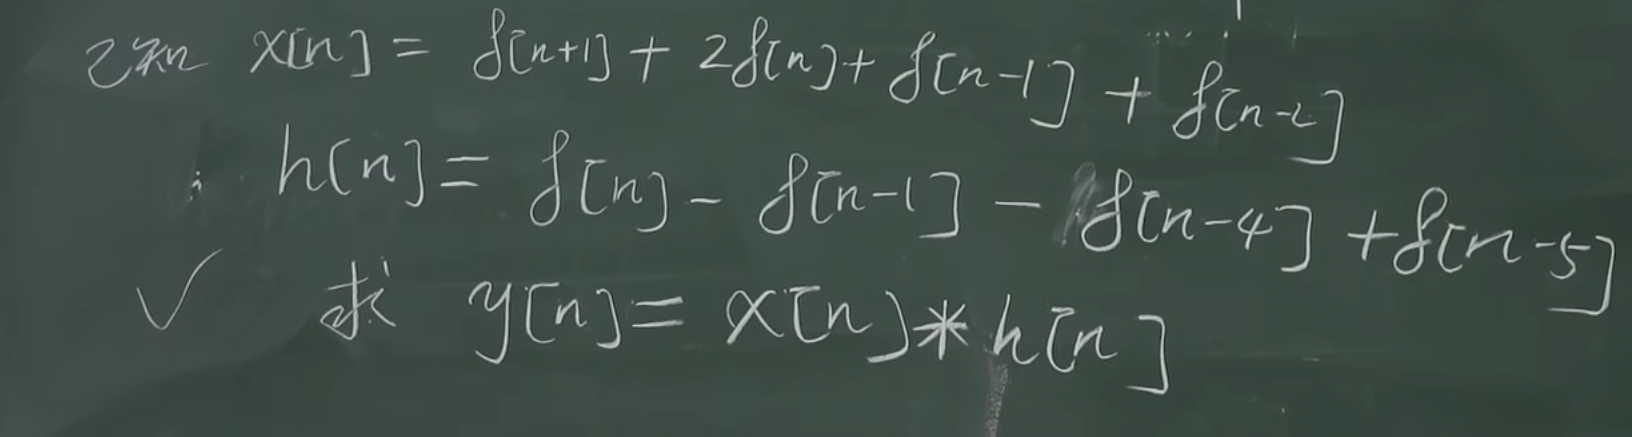 已知 x[n] = δ[n+1] + 2δ[n] + δ[n-1] + δ[n-2]
h[n] = δ[n] - δ[n-1] - δ[n-4] + δ[n-5]
✓ 求 y[n] = x[n] * h[n]